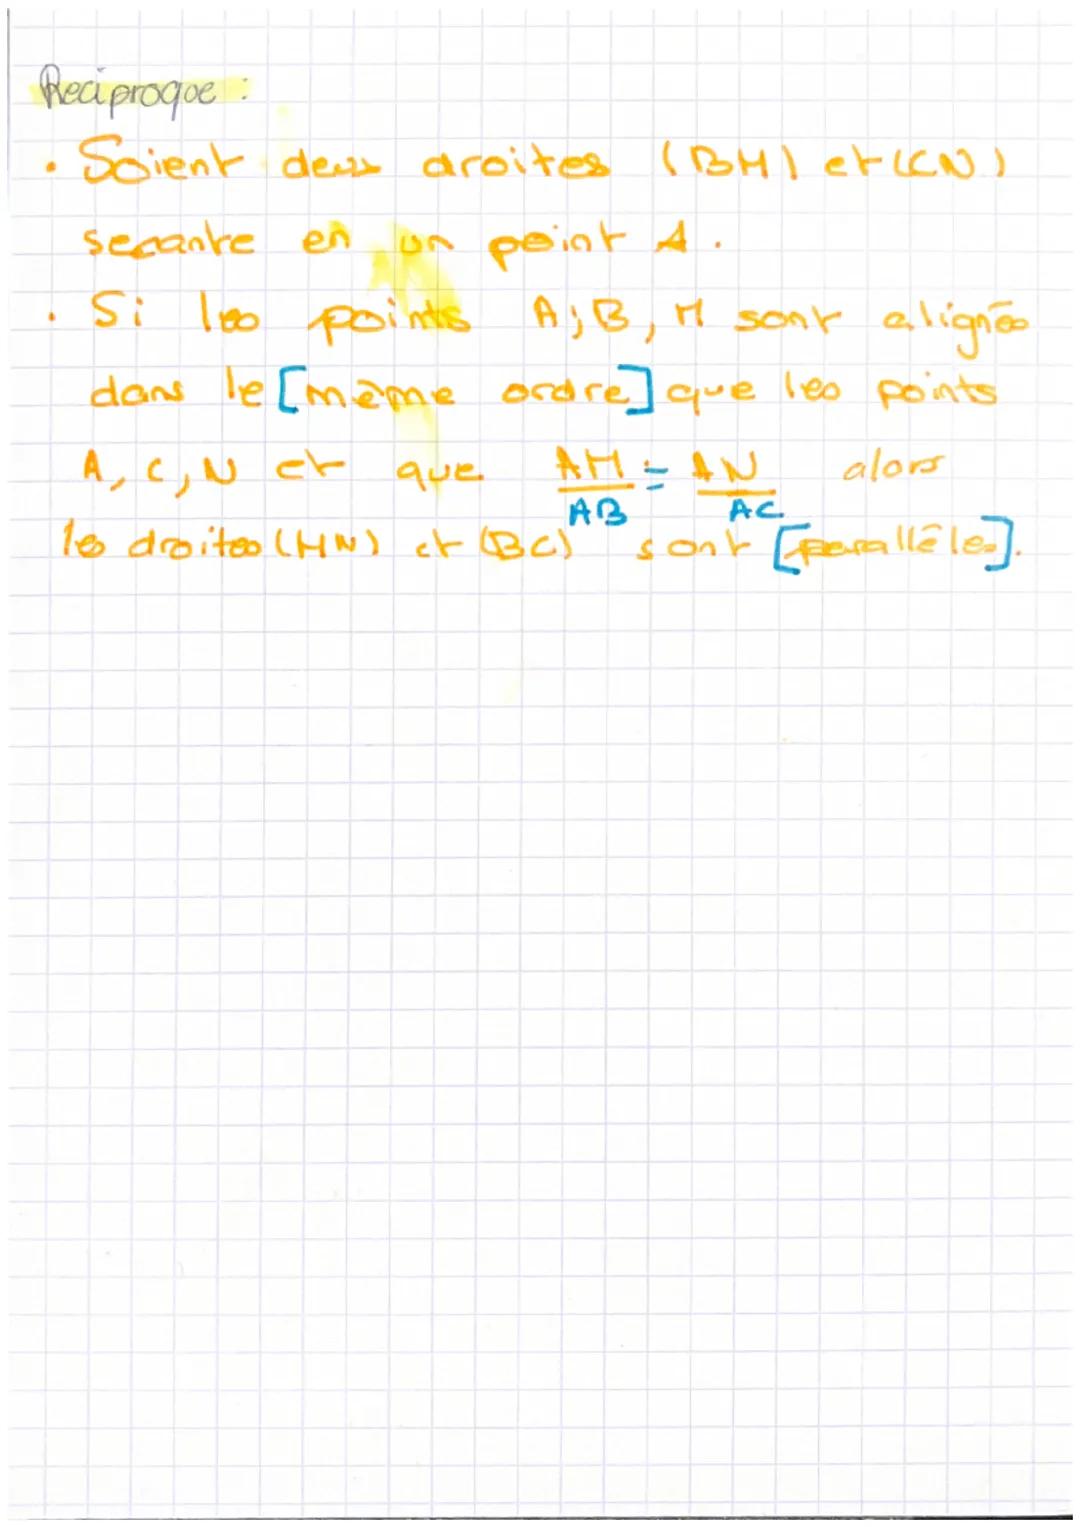 Reciproque :
• Soient deux droites (BM) et (CN)
secante en un point A.
• Si les points A; B, M sont alignés
dans le [même ordre] que les points
A, C, N et que AM/AB = AN/AC alors
les droites (MN) et (BC) sont [parallèles].